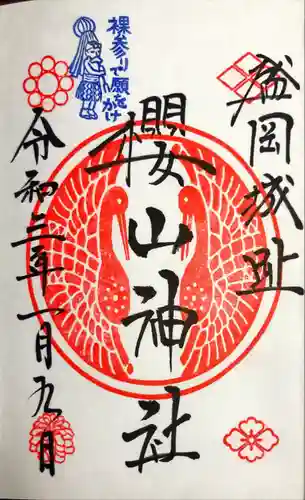 盛岡城趾
櫻山神社
令和三年一月九日
裸参りで願を
かけ